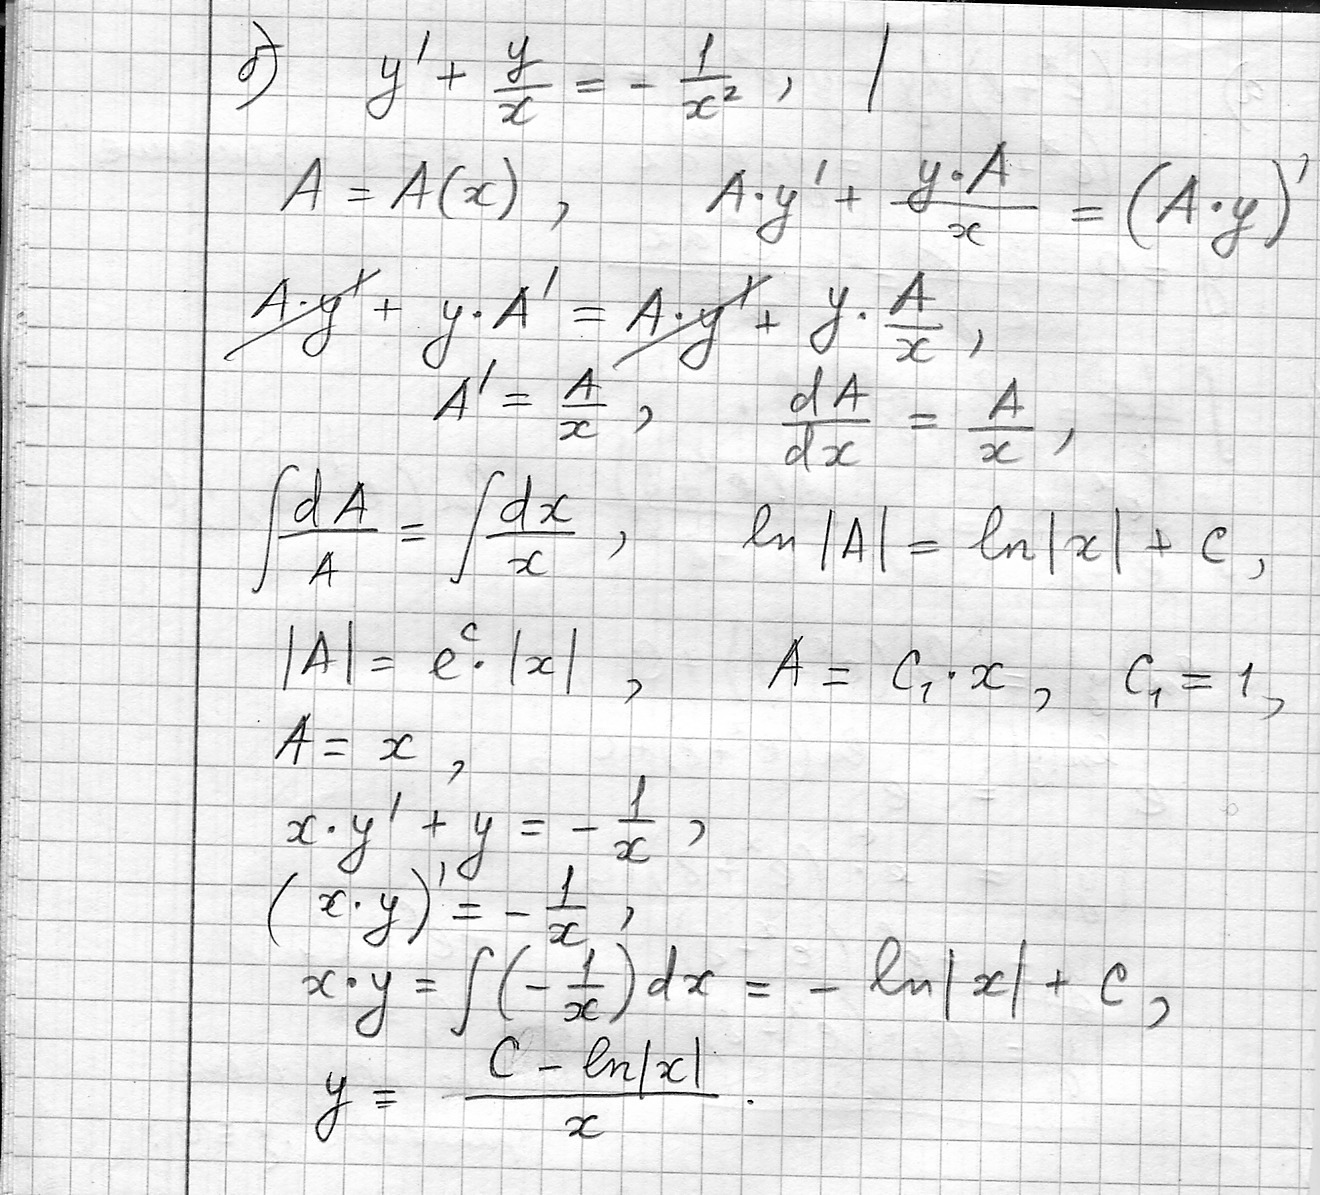 б) y' + y/x = - 1/x², |
A = A(x), A·y' + y·A/x = (A·y)'
A·y' + y·A' = A·y' + y·A/x,
A' = A/x, dA/dx = A/x,
∫dA/A = ∫dx/x, ln|A| = ln|x| + C,
|A| = e^c·|x|, A = C₁·x, C₁ = 1,
A = x,
x·y' + y = - 1/x,
(x·y)' = - 1/x,
x·y = ∫(- 1/x)dx = - ln|x| + C,
y = (C - ln|x|)/x.